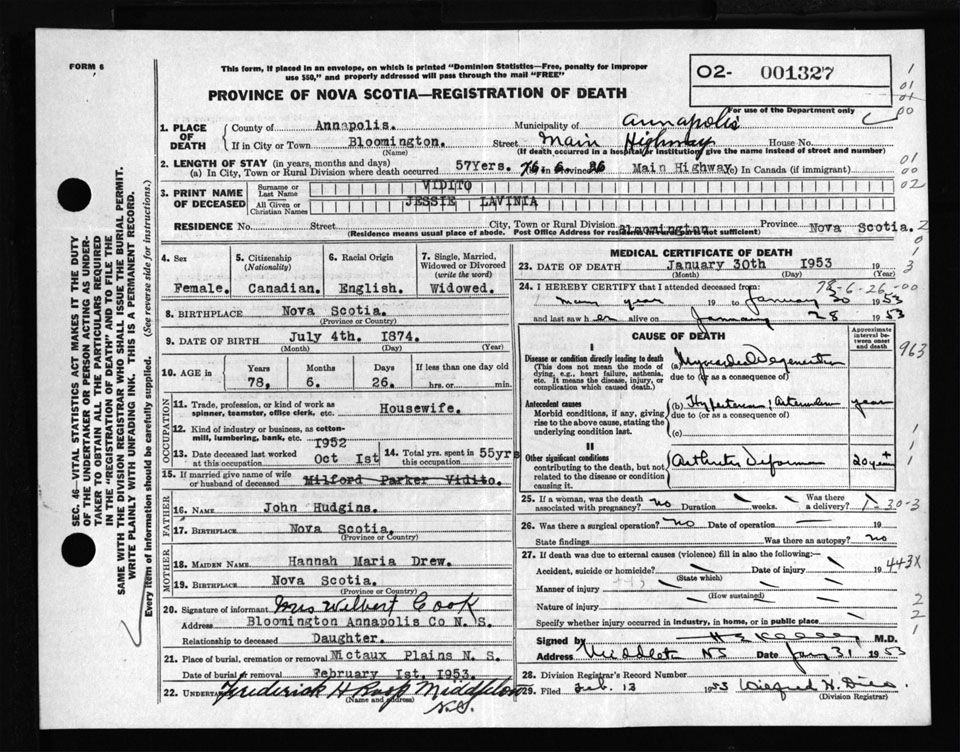 FORM 6
This form, if placed in an envelope, on which is printed "Dominion Statistics—Free, penalty for improper
use $50," and properly addressed will pass through the mail "FREE"
PROVINCE OF NOVA SCOTIA—REGISTRATION OF DEATH
O2- 001327
For use of the Department only
1. PLACE OF DEATH
County of Annapolis. Municipality of Annapolis
If in City or Town Bloomington. Street Main Highway House No.
(Name) (If death occurred in a hospital or institution, give the name instead of street and number)
2. LENGTH OF STAY (in years, months and days)
(a) In City, Town or Rural Division where death occurred 57Yers. Main Highway (c) In Canada (if immigrant)
3. PRINT NAME OF DECEASED
Surname or Last Name VIDITO
All Given or Christian Names JESSIE LAVINIA
RESIDENCE No. Street City, Town or Rural Division Bloomington. Province Nova Scotia.
(Residence means usual place of abode. Post Office Address for not sufficient)
4. Sex Female.
5. Citizenship (Nationality) Canadian.
6. Racial Origin English.
7. Single, Married, Widowed or Divorced (write the word) Widowed.
8. BIRTHPLACE Nova Scotia.
(Province or Country)
9. DATE OF BIRTH July 4th. 1874.
(Month) (Day) (Year)
10. AGE in Years 78, Months 6. Days 26. If less than one day old hrs. or min.
OCCUPATION
11. Trade, profession, or kind of work as spinner, teamster, office clerk, etc. Housewife.
12. Kind of industry or business, as cotton-mill, lumbering, bank, etc.
13. Date deceased last worked at this occupation 1952 Oct 1st
14. Total yrs. spent in this occupation 55yrs
15. If married give name of wife or husband of deceased Milford Parker Vidito.
FATHER
16. NAME John Hudgins.
17. BIRTHPLACE Nova Scotia.
(Province or Country)
MOTHER
18. MAIDEN NAME Hannah Maria Drew.
19. BIRTHPLACE Nova Scotia.
(Province or Country)
20. Signature of informant Mrs Wilbert Cook
Address Bloomington Annapolis Co N. S.
Relationship to deceased Daughter.
21. Place of burial, cremation or removal Nictaux Plains N. S.
Date of burial or removal February 1st. 1953.
22. UNDERTAKER Frederick H Roop Middleton
N.S.
(Name and address)
MEDICAL CERTIFICATE OF DEATH
23. DATE OF DEATH January 30th 1953 19
(Month) (Day) (Year)
78-6-26-00
24. I HEREBY CERTIFY that I attended deceased from:
many year 19 to January 30 1953
and last saw her alive on January 28 1953
CAUSE OF DEATH
Approximate interval between onset and death
963
I
Disease or condition directly leading to death
(This does not mean the mode of dying, e.g., heart failure, asthenia, etc. It means the disease, injury, or complication which caused death.)
(a) Myocardial Degeneration
due to (or as a consequence of)
Antecedent causes
Morbid conditions, if any, giving rise to the above cause, stating the underlying condition last.
(b) Hypertension; years
due to (or as a consequence of)
(c)
II
Other significant conditions
contributing to the death, but not related to the disease or condition causing it.
Arthritis Deforman 20 years +
25. If a woman, was the death associated with pregnancy? no Duration weeks. Was there a delivery?
1-30-3
26. Was there a surgical operation? no Date of operation 19
State findings Was there an autopsy? no
27. If death was due to external causes (violence) fill in also the following:—
Accident, suicide or homicide? Date of injury 19
443X
(State which)
Manner of injury
(How sustained)
Nature of injury
Specify whether injury occurred in industry, in home, or in public place
Signed by H E Kelley M.D.
Address Middleton NS Date Jan 31 1953
28. Division Registrar's Record Number
29. Filed Feb. 13 1953
(Division Registrar)
SEC. 46—VITAL STATISTICS ACT MAKES IT THE DUTY
OF THE UNDERTAKER OR PERSON ACTING AS UNDER-
TAKER TO OBTAIN ALL THE PARTICULARS REQUIRED
IN THE "REGISTRATION OF DEATH" AND TO FILE THE
SAME WITH THE DIVISION REGISTRAR WHO SHALL ISSUE THE BURIAL PERMIT.
WRITE PLAINLY WITH UNFADING INK. THIS IS A PERMANENT RECORD.
Every item of information should be carefully supplied. (See reverse side for instructions.)